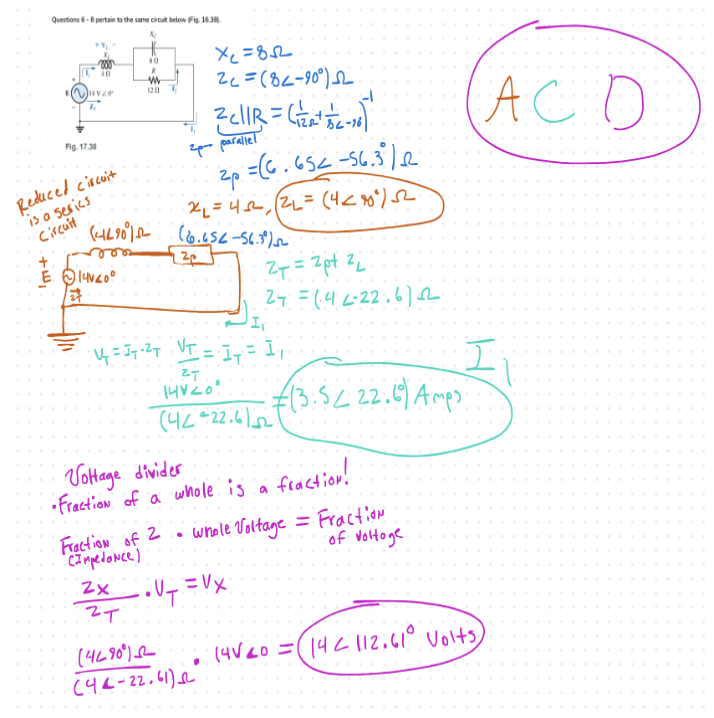 Questions 6 - 8 pertain to the same circuit below (Fig. 16.38).
+ V₁ -
X_C
8 Ω
4 Ω
R
12 Ω
E
14 V ∠ 0°
Z_T
I₁
Fig. 17.38
X_C = 8Ω
Z_C = (8∠-90°)Ω
Z_C||R = (1/12Ω + 1/8∠-90)⁻¹
Zp parallel
Zp = (6.65∠-56.3°)Ω
X_L = 4Ω, Z_L = (4∠90°)Ω
A C D
Reduced circuit
is a series
circuit
(4∠90°)Ω
(6.65∠-56.3°)Ω
Zp
+
E
14V∠0°
ZT
I₁
Z_T = Zp + Z_L
Z_T = (4∠-22.6)Ω
V_T = I_T·Z_T
V_T/Z_T = I_T = I₁
I₁
14V∠0°/(4∠-22.6)Ω = (3.5∠22.6°) Amps
Voltage divider
• Fraction of a whole is a fraction!
Fraction of Z • whole Voltage = Fraction
(Impedance)
of Voltage
Zx/Z_T • V_T = Vx
(4∠90°)Ω/(4∠-22.61)Ω • 14V∠0 = 14∠112.61° Volts